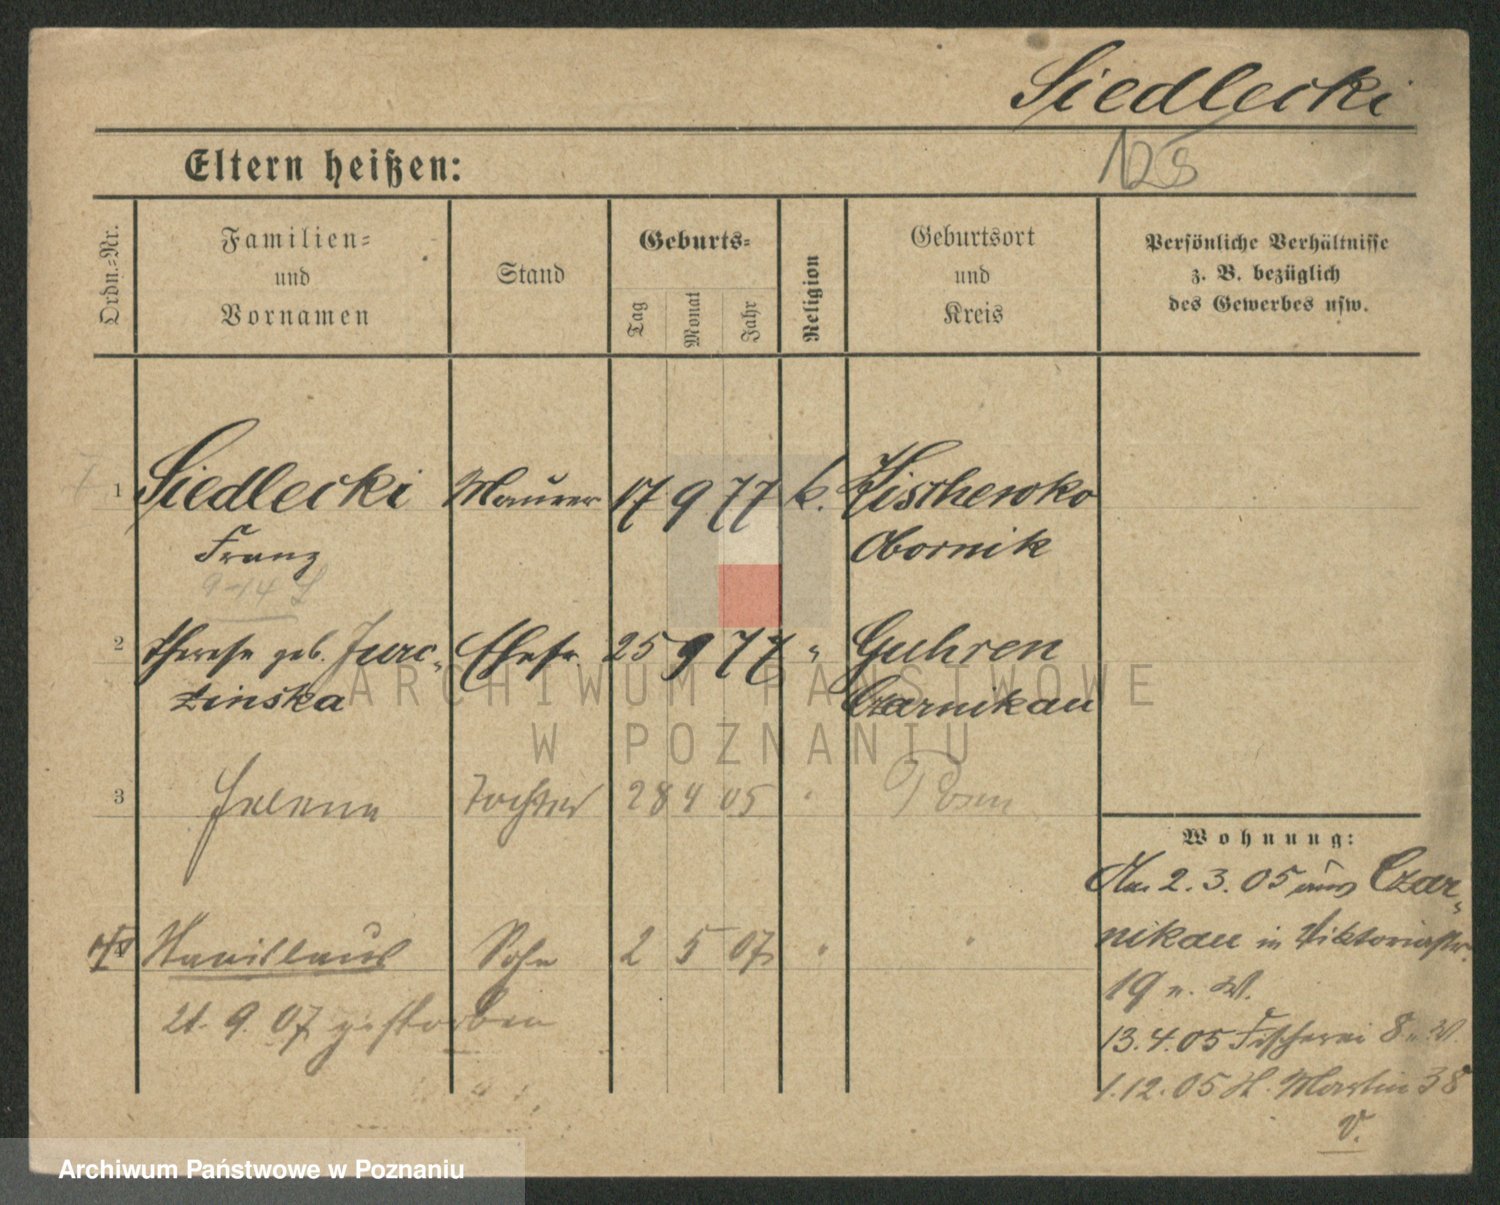 Siedlecki
Eltern heißen:
Ordn.-Nr.
Familien-
und
Vornamen
Stand
Geburts-
Tag
Monat
Jahr
Religion
Geburtsort
und
Kreis
Persönliche Verhältnisse
z. B. bezüglich
des Gewerbes usw.
1 Siedlecki Maurer 17 9 77 k. Zischewko
Franz Obornik
2 Therese geb. Jurc- Ehefr. 25 9 77 " Guhren
zinska Czarnikau
3 Helene Tochter 28 4 05 " Posen
Stanislaus Sohn 2 5 07 " "
21. 9. 07 gestorben
Wohnung:
2. 3. 05 aus Czar-
nikau in Viktoriastr.
19 n. W.
13. 4. 05 Fischerei 8 n. W.
1. 12. 05 St. Martin 38
V.
ARCHIWUM PAŃSTWOWE
W POZNANIU
Archiwum Państwowe w Poznaniu